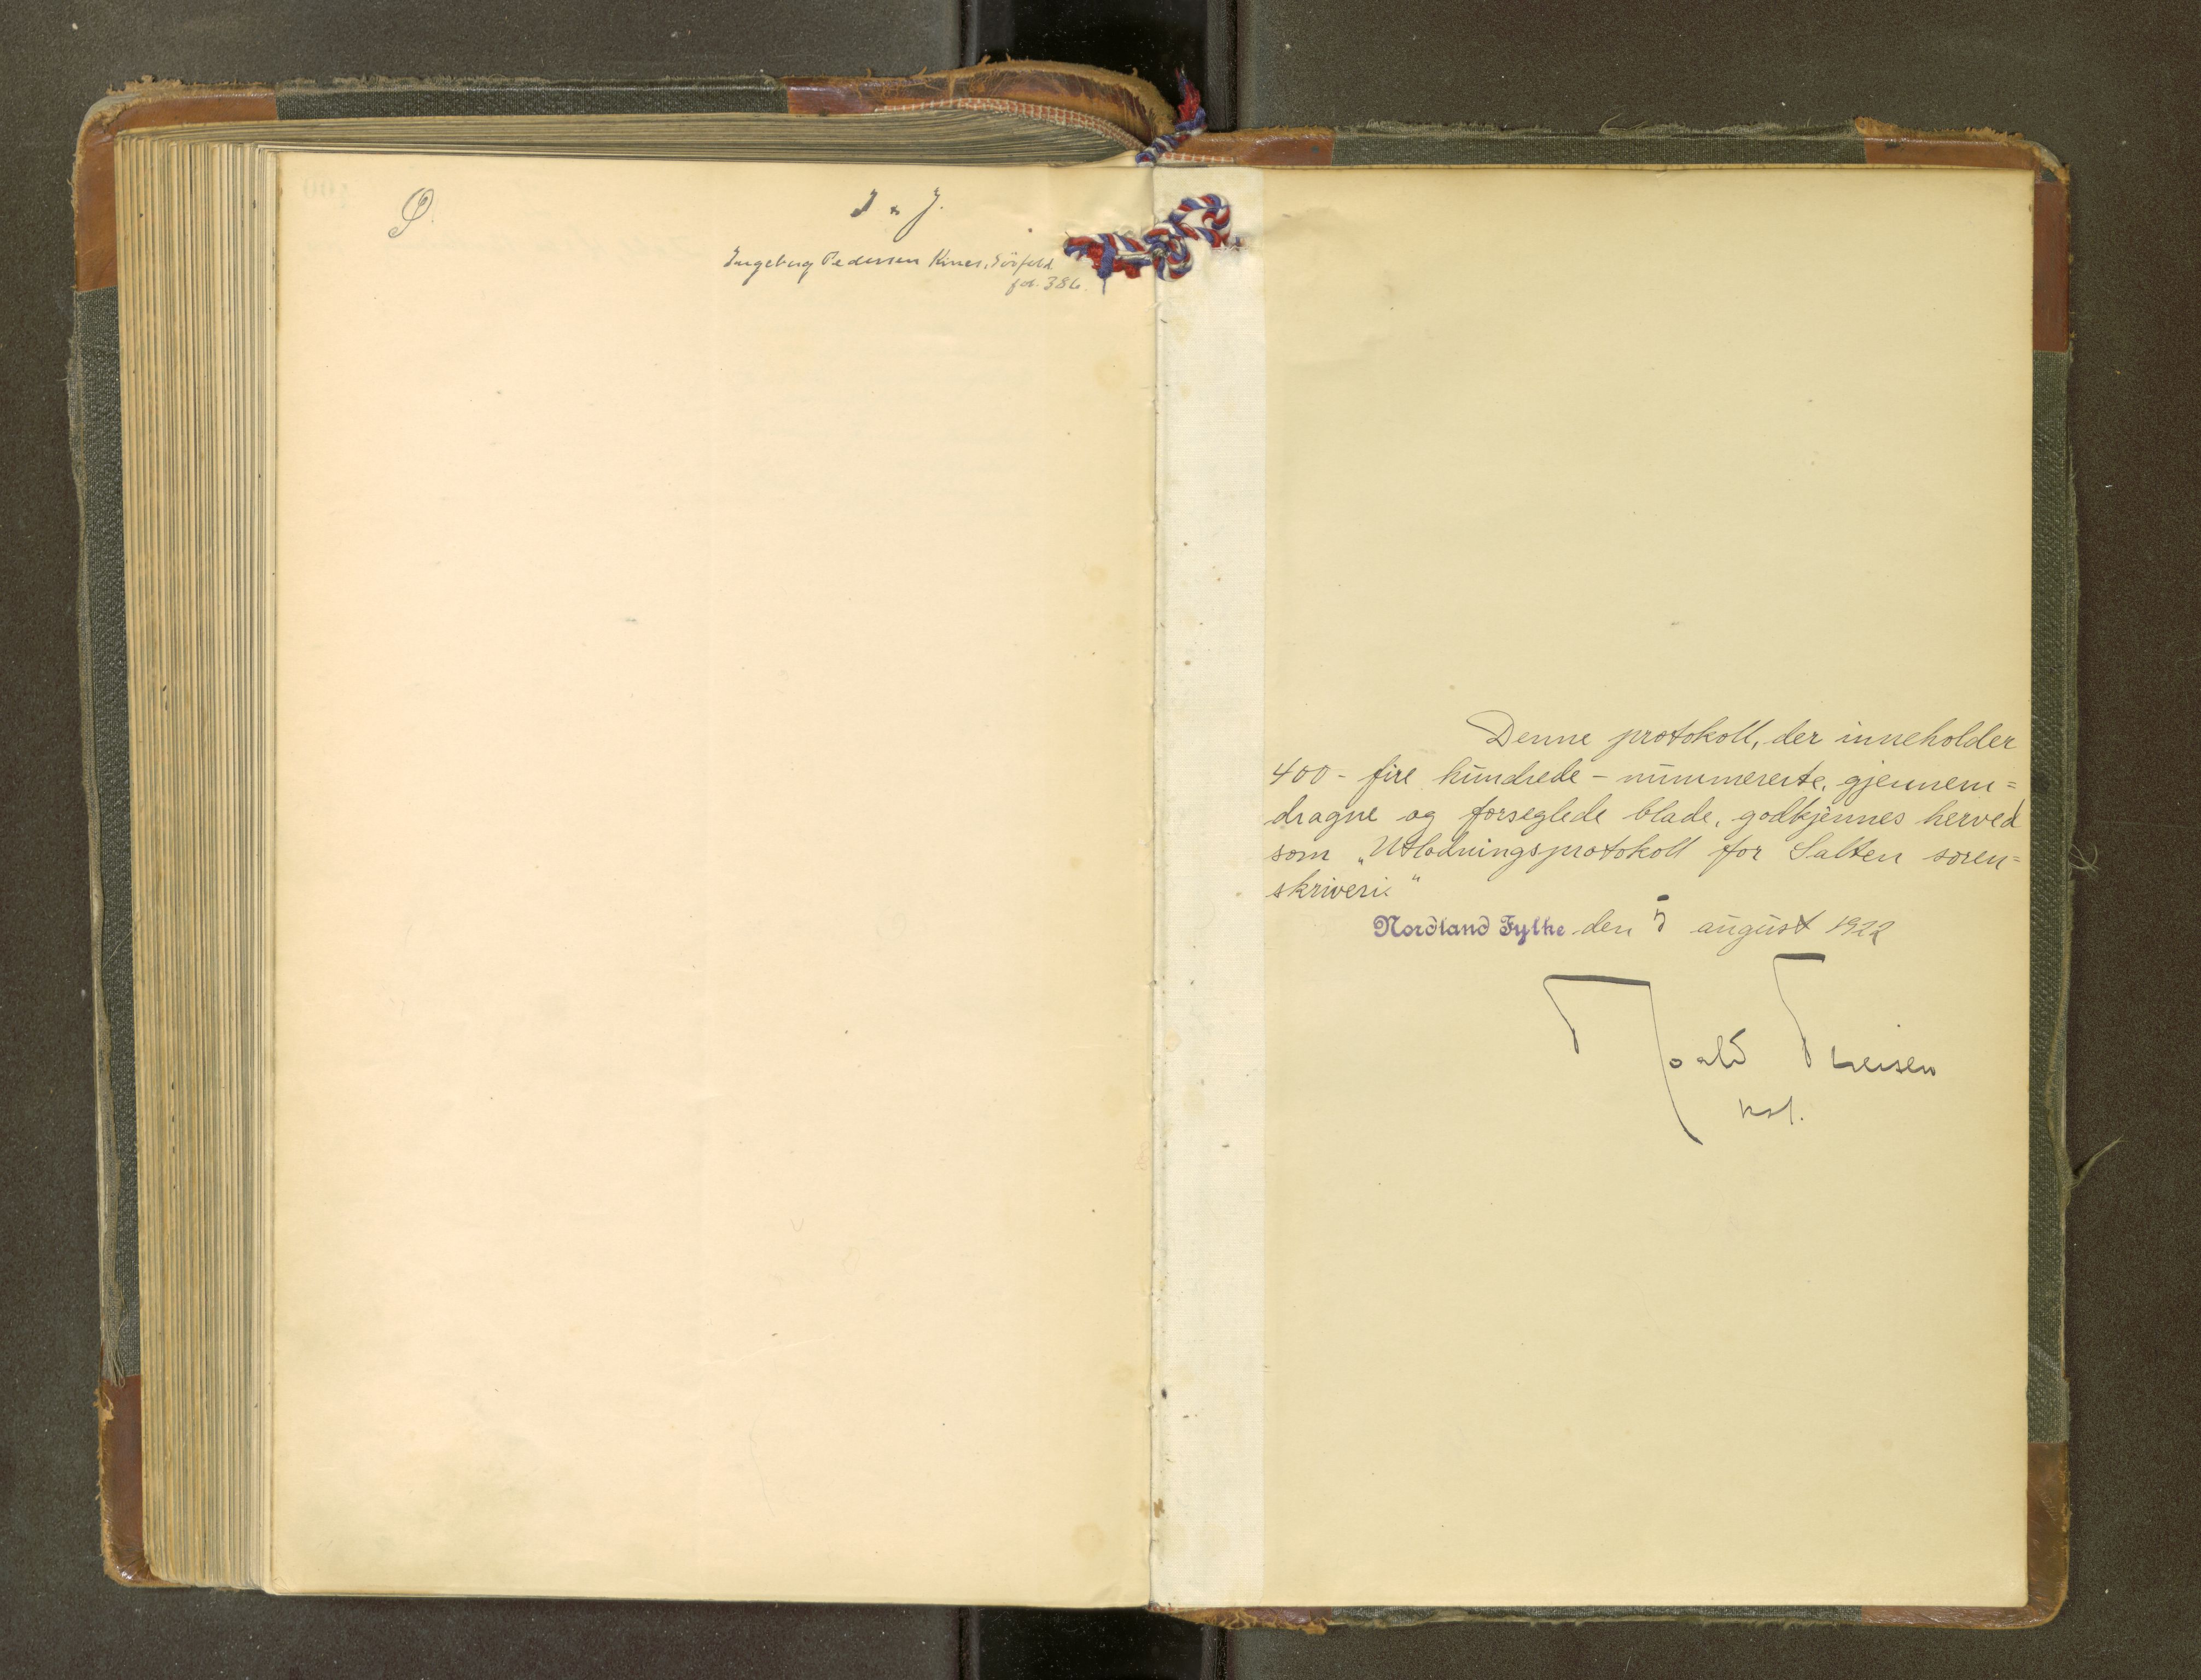 Ø.
I & J.
Ingeborg Pedersen Kines, Sörfold
fol. 386.
Denne protokoll, der inneholder
400 - fire hundrede - nummererte, gjennem=
dragne og forseglede blade, godkjennes herved
som „Utlodningsprotokoll for Salten soren=
skriveri“
Nordland Fylke den 5 august 1922
Roald Theisen